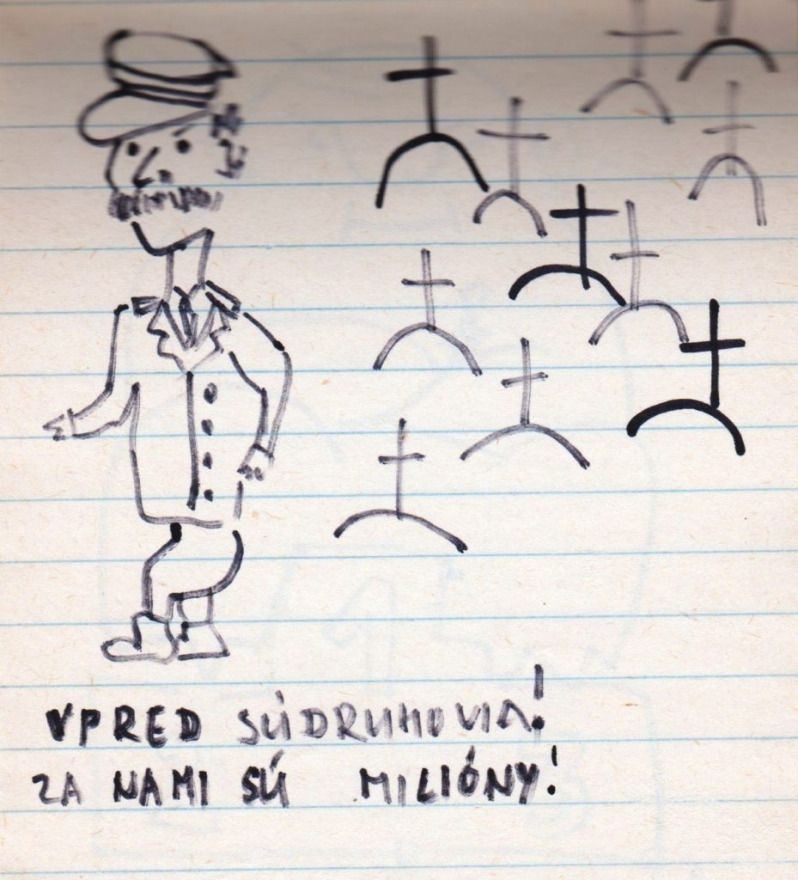 VPRED SÚDRUHOVIA!
ZA NAMI SÚ MILIÓNY!